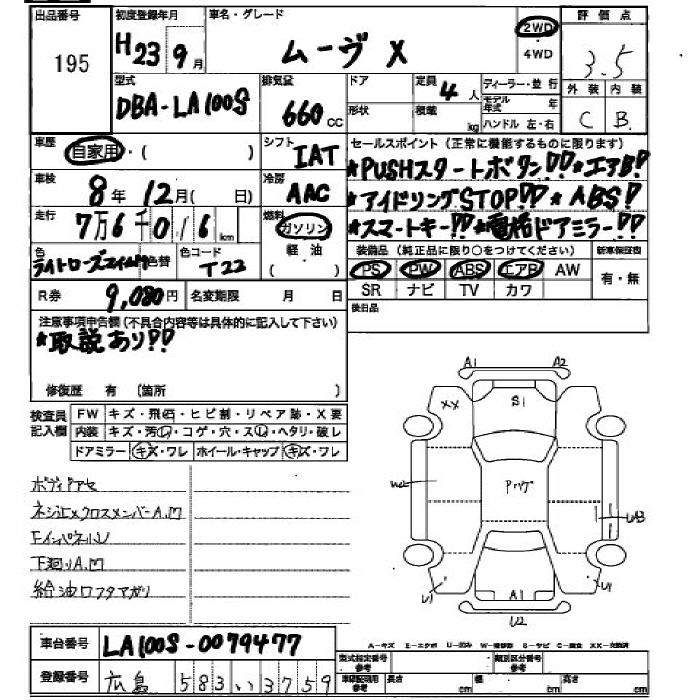 出品番号 初度登録年月 車名・グレード 評価点
195 H23 9月 ムーヴ X 2WD 4WD 3.5
外装 内装
C B
型式 排気量 ドア 定員 ディーラー・並行
DBA-LA100S 660cc 形状 4人 積載 kg モデル年式 年
ハンドル 左・右
車歴 自家用・( ) シフト IAT セールスポイント (正常に機能するものに限ります)
★PUSHスタートボタン!! ★エアB!
車検 8年 12月( 日) 冷房 AAC
★アイドリングSTOP!! ★ABS!
走行 7万6千016km 燃料 ガソリン 軽油 ( )
★スマートキー!! ★電格ドアミラー!!
色 色替 色コード T22
装備品 (純正品に限り○をつけてください) 新車保証書
PS PW ABS エアB AW 有・無
SR ナビ TV カワ
R券 9,080円 名変期限 月 日
後日品
注意事項申告欄(不具合内容等は具体的に記入して下さい)
★取説あり!!
修復歴 有 (箇所 )
検査員記入欄 FW キズ・飛石・ヒビ割・リペア跡・X要
内装 キズ・汚レ・コゲ・穴・スレ・ヘタリ・破レ
ドアミラー キズ・ワレ ホイール・キャップ キズ・ワレ
A1 A2
XX S1
W2 Pハゲ U3
U1 A1 U1
U2
ボディアセ
ネジ止メクロスメンバーA.M
FインパネルU
下廻リA.M
給油口フタアガリ
車台番号 LA100S-0079477
A-キズ E-エクボ U-凹み W-補修跡 S-サビ C-腐食 XX-交換済
登録番号 広島 583 い 3759
型式指定番号 参考 類別区分番号 参考
車庫証明用 参考 長さ cm 幅 cm 高さ cm